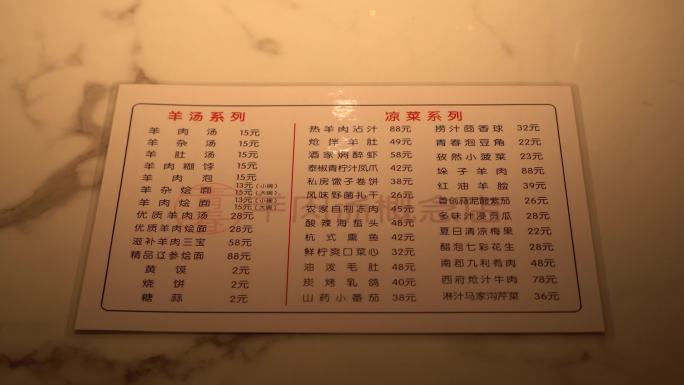 羊汤系列
羊肉汤 15元
羊杂汤 15元
羊肚汤 15元
羊肉糊饽 15元
羊肉泡 15元
羊杂烩面 13元(小碗) 15元(大碗)
羊肉烩面 13元(小碗) 15元(大碗)
优质羊肉汤 28元
优质羊肉烩面 28元
滋补羊肉三宝 58元
精品辽参烩面 88元
黄馍 2元
烧饼 2元
糖蒜 2元
凉菜系列
热羊肉沾汁 88元
炝拌羊肚 49元
酒家焖醉虾 58元
泰椒青柠汁凤爪 42元
私房馓子卷饼 38元
风味野菌扎干 26元
农家自制冻肉 45元
酸辣海蜇头 48元
杭式熏鱼 42元
鲜柠爽口菜心 32元
油泼毛肚 48元
炭烤乳鸽 40元
山药小番茄 38元
捞汁茴香球 32元
青春泡豆角 22元
孜然小菠菜 23元
垛子羊肉 88元
红油羊脸 39元
首创蒜泥酸紫茄 26元
多味汁浸黄瓜 28元
夏日清凉梅果 22元
醋泡七彩花生 28元
南郡九利肴肉 48元
西府炝汁牛肉 78元
淋汁马家沟芹菜 36元